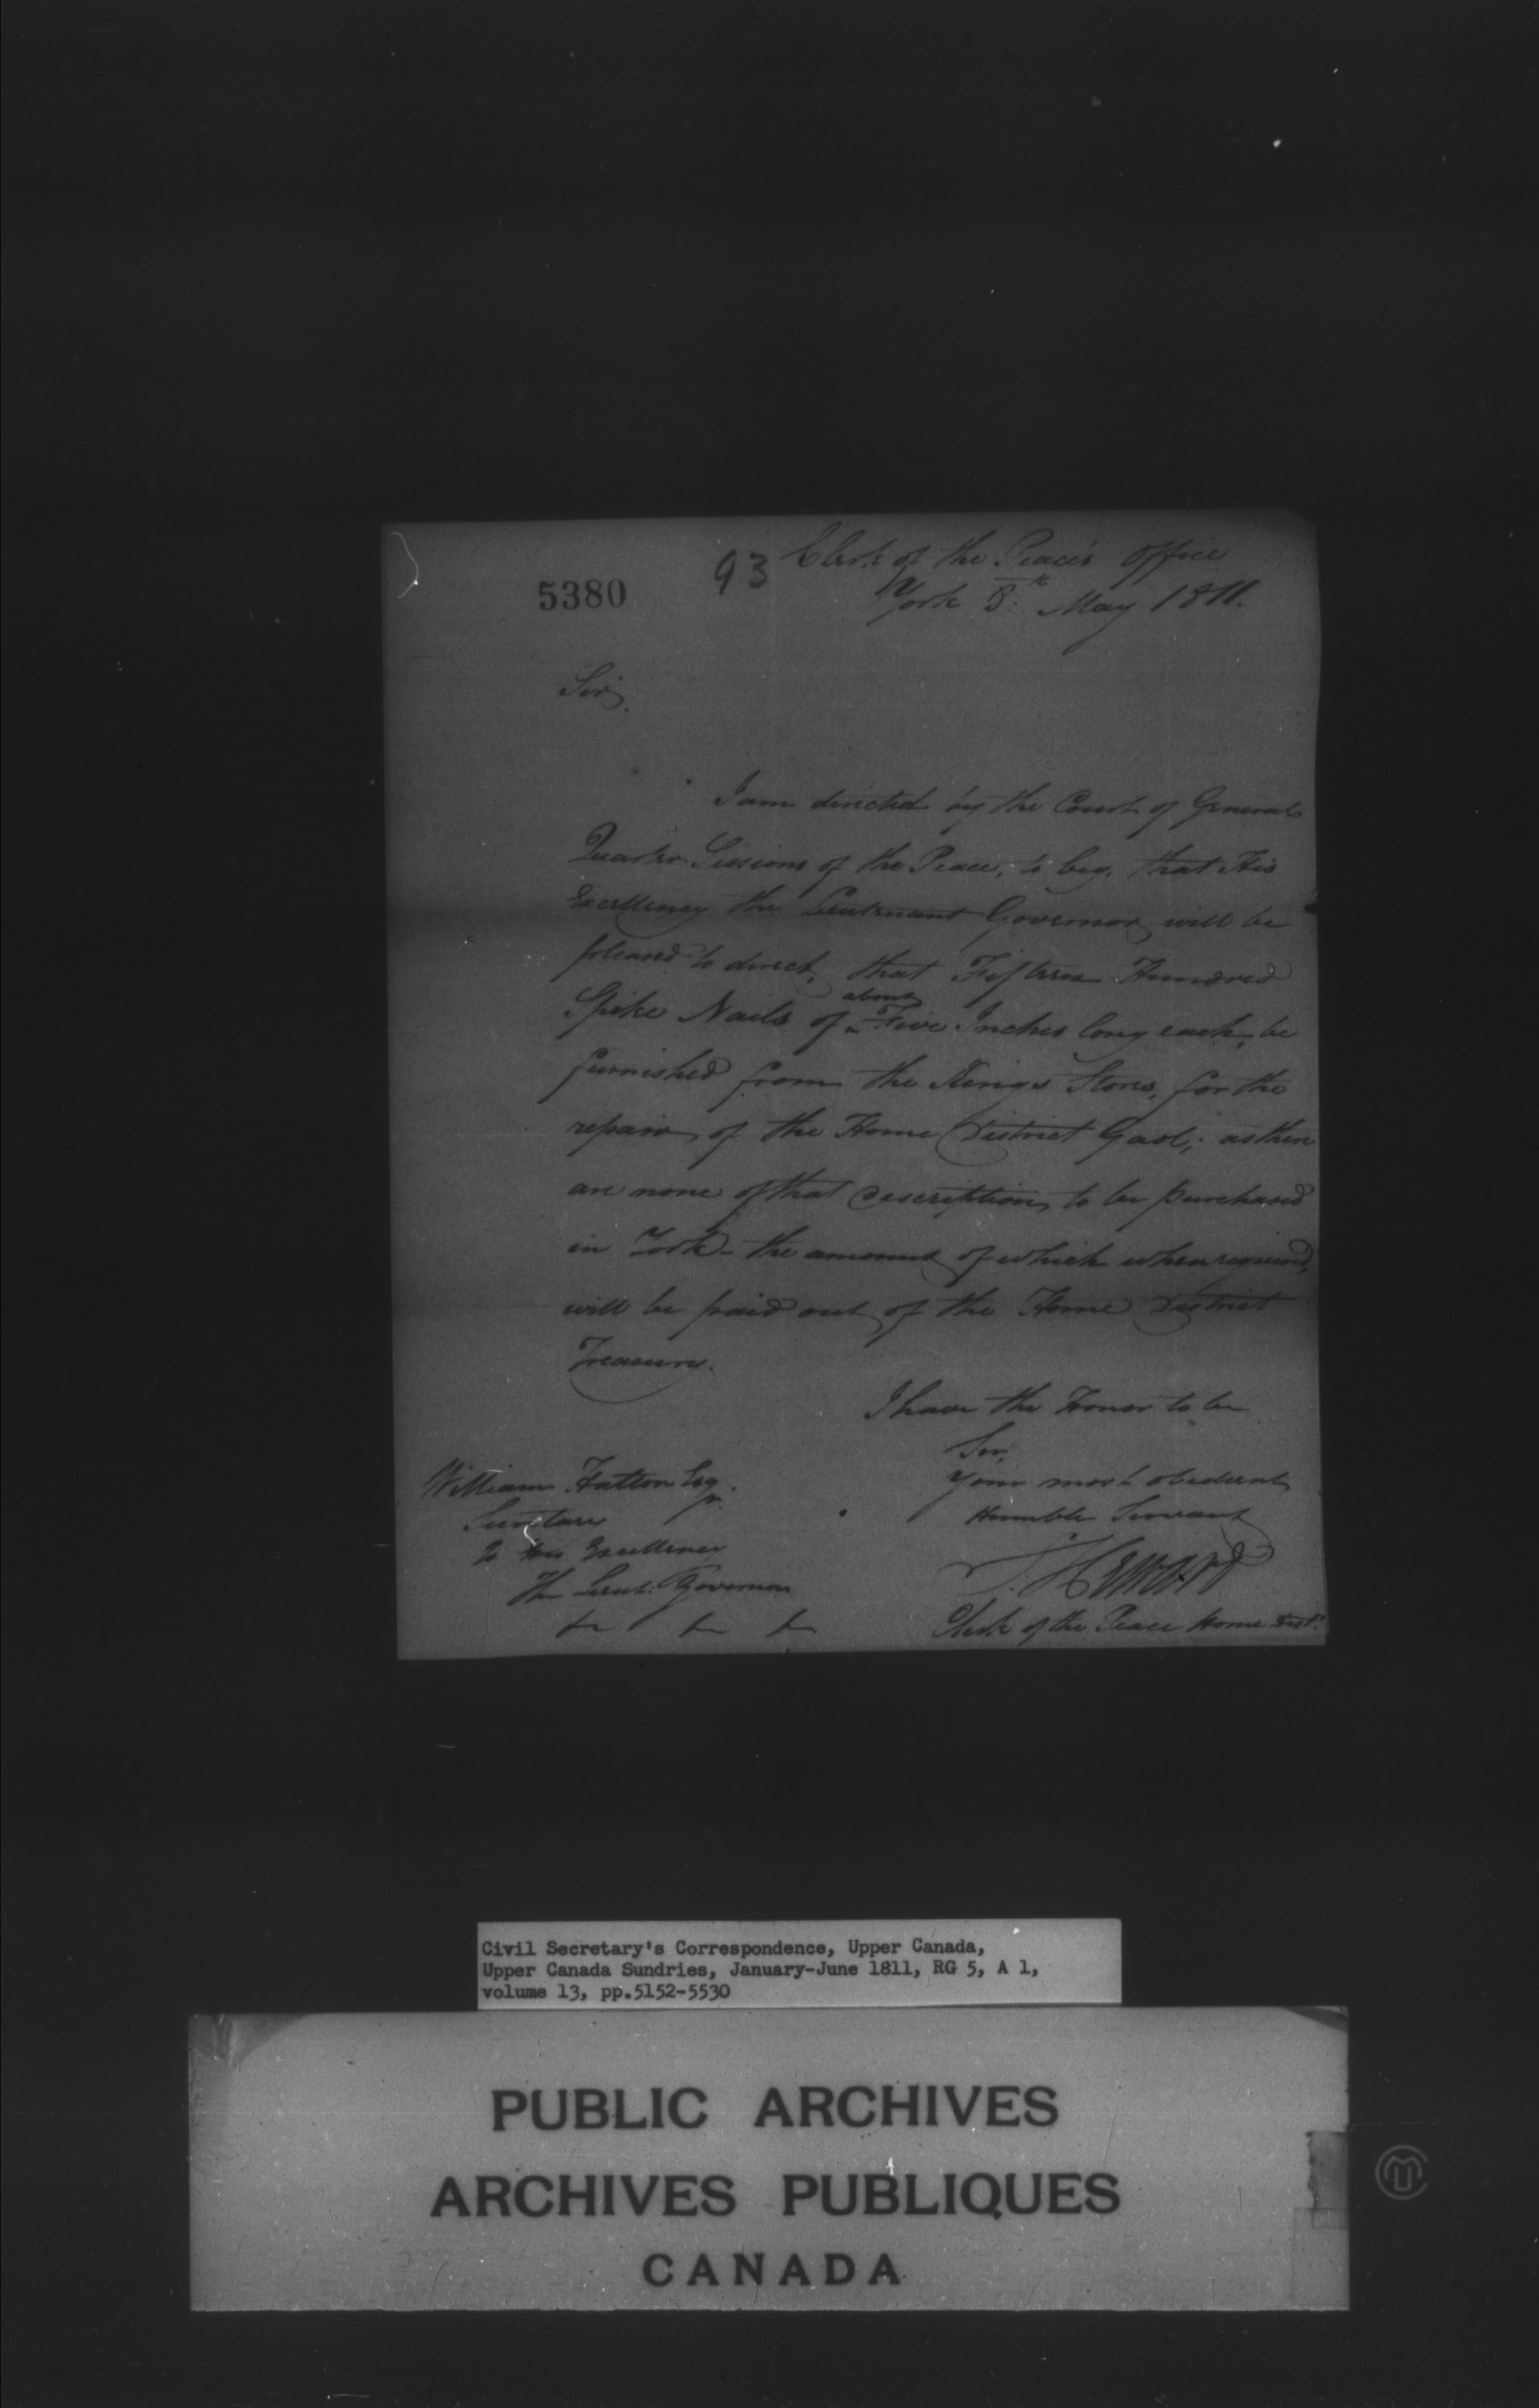 93 Clerk of the Peace's Office
5380
York 8th May 1811.
Sir,
I am directed by the Court of General
Quarter Sessions of the Peace, to beg, that His
Excellency the Lieutenant Governor will be
pleased to direct, that Fifteen Hundred
Spike Nails of about Five Inches long each, be
furnished from the Kings Stores, for the
repair of the Home District Gaol; as there
are none of that description to be purchased
in York - the amount of which when required,
will be paid out of the Home District
Treasury.
I have the Honor to be
Sir,
Your most obedient
Humble Servant
S. Heward
Clerk of the Peace Home Dist.
William Halton Esqr.
Secretary
to His Excellency
The Lieut. Governor
&c &c &c
Civil Secretary's Correspondence, Upper Canada,
Upper Canada Sundries, January-June 1811, RG 5, A 1,
volume 13, pp.5152-5530
PUBLIC ARCHIVES
ARCHIVES PUBLIQUES
CANADA